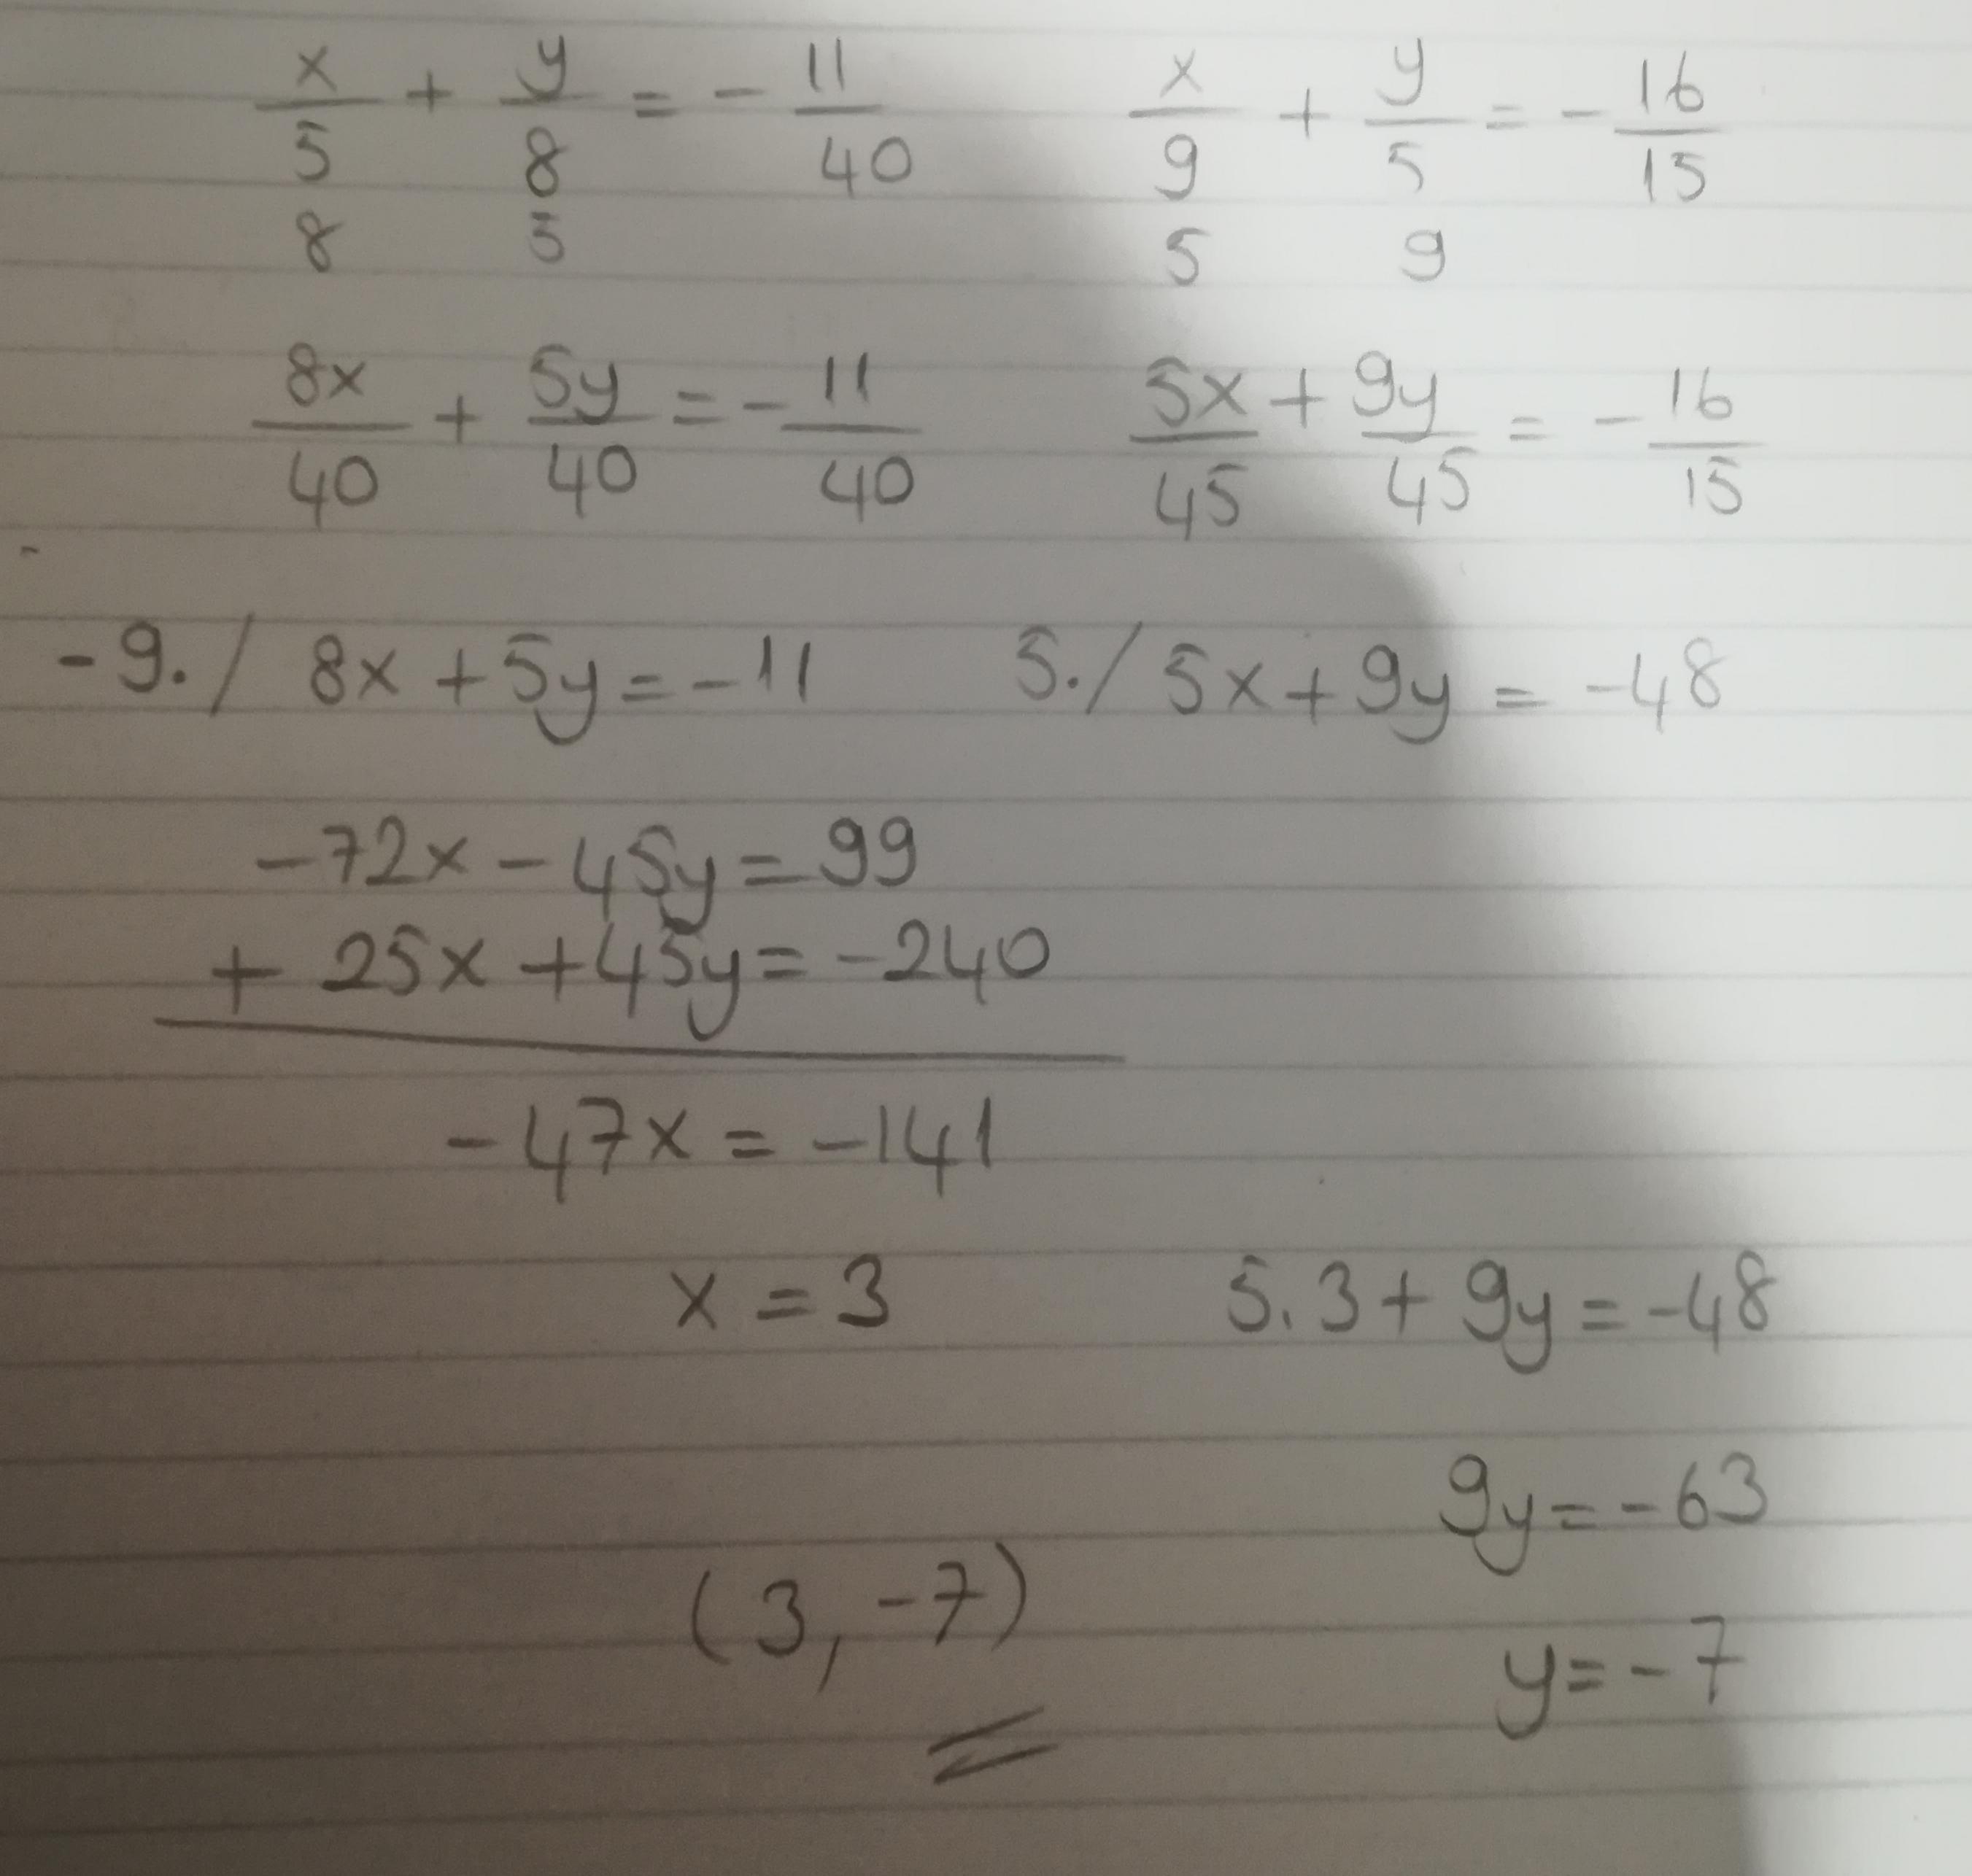 x/5 + y/8 = - 11/40    x/9 + y/5 = - 16/15
8    5    5    9
8x/40 + 5y/40 = - 11/40    5x/45 + 9y/45 = - 16/15
-9./ 8x + 5y = -11    5./ 5x + 9y = -48
-72x - 45y = 99
+ 25x + 45y = -240
-47x = -141
x = 3    5.3 + 9y = -48
9y = -63
(3, -7)
y = -7